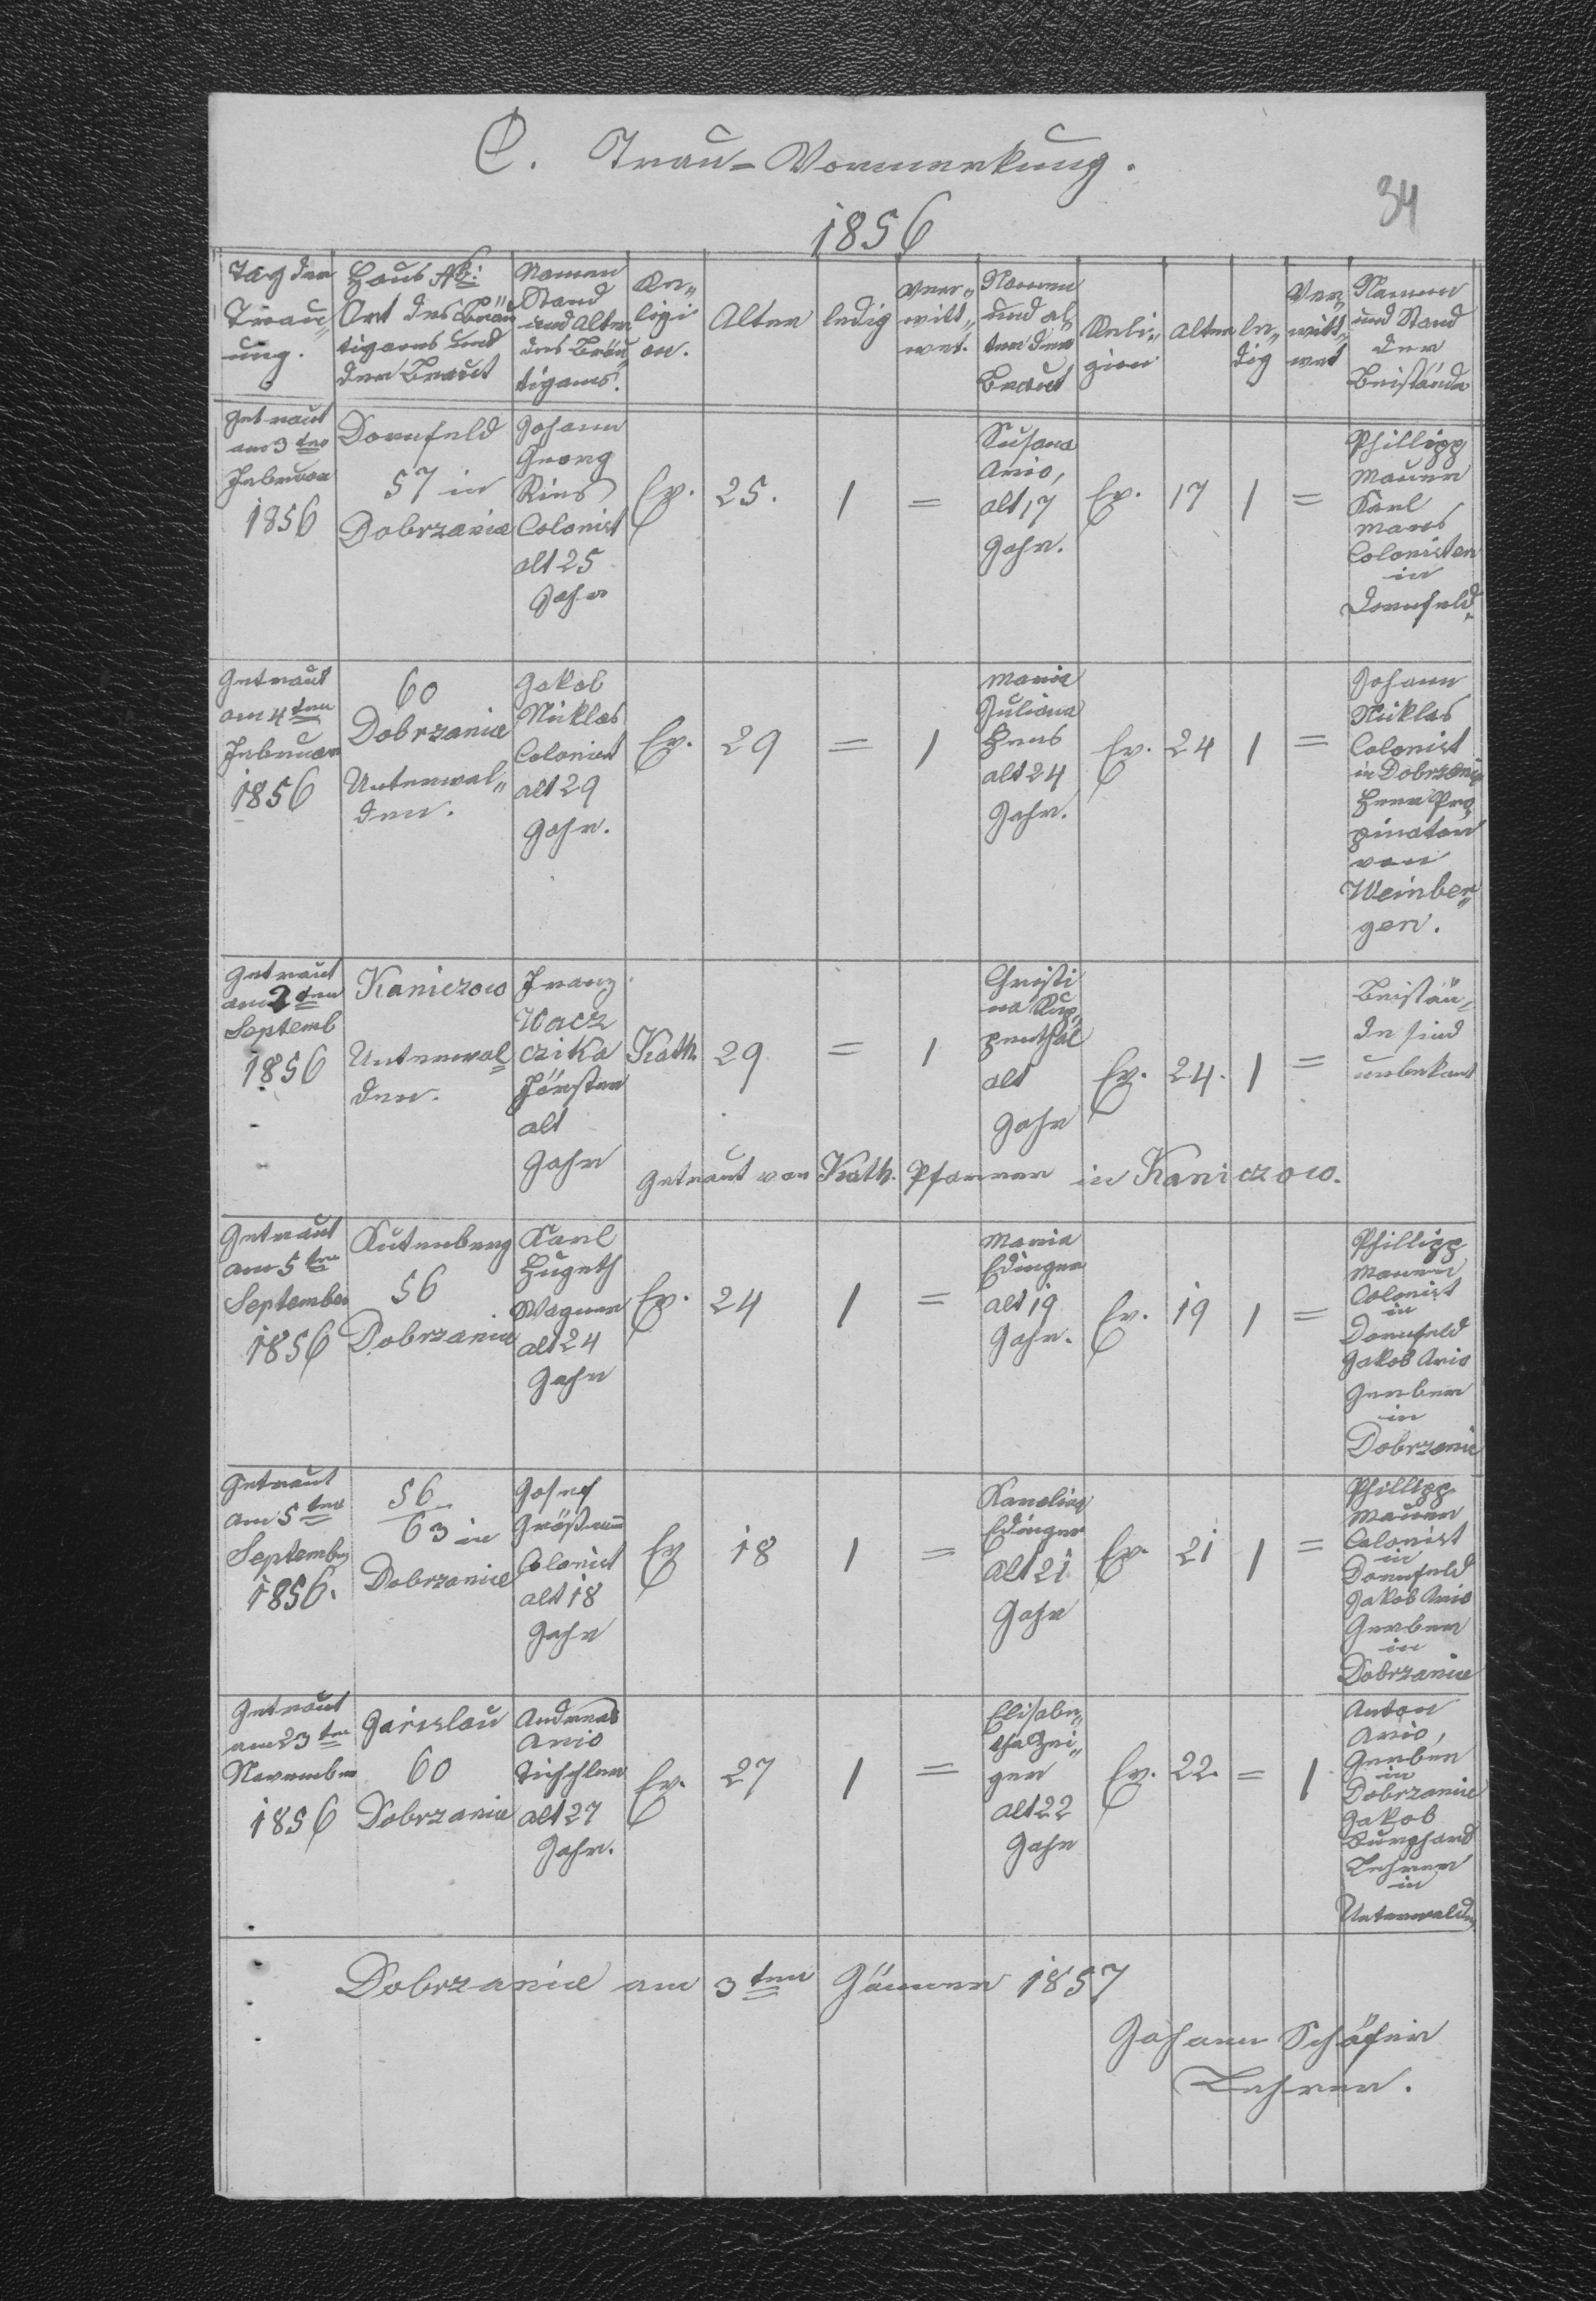 C. Trau-Vormerkung.
34
1856
Tag der
Trau„
ung.
Haus No:
Ort des Bräu
tigams und
der Braut
Namen
Stand
und Alter
des Bräu
tigams.
Re„
ligi
on.
Alter
ledig
Ver„
witt„
wet.
Namen
und al
ter der
Braut
Reli„
gion
Alter
le„
dig
Ver„
witt„
wet
Namen
und Stand
der
Beistände
Getraut
am 3ten
Februar
1856
Dornfeld
57 in
Dobrzanice
Johann
Georg
Ries
Colonist
alt 25
Jahr
Ev.
25.
1
=
Susana
Ario,
alt 17
Jahr.
Ev.
17
1
=
Phillipp
Mauer
Karl
Colonisten
in
Dornfeld.
Getraut
am 4ten
Februar
1856
60
Dobrzanice
Unterwal„
den.
Jakob
Niklas
Colonist
alt 29
Jahr.
Ev.
29
=
1
Maria
Juliana
alt 24
Jahr.
Ev.
24
1
=
Johann
Niklas
Colonist
in Dobrzanice
Herr Pro
pinator
von
Weinber„
gen.
Getraut
am 2ten
Septemb
1856
Kaniczow
Unterwal
den.
Franz
Wacz
czika
Förster
alt
Jahr
Kath.
29
=
1
Christi
na Kup„
penthal
alt
Jahr
Ev.
24.
1
=
Beistän„
de sind
unbekant
Getraut von Kath. Pfarrer in Kaniczow.
Getraut
am 5ten
September
1856
Rutenberg
56
Dobrzanice
Karl
Hugeth
Wagner
alt 24
Jahr
Ev.
24
1
=
Maria
Edinger
alt 19
Jahr.
Ev.
19
1
=
Phillipp
Mauer
Colonist
in
Dornfeld
Jakob Ario
Gerber
in
Dobrzanice
Getraut
am 5ten
September
1856.
56
63 in
Dobrzanice
Josef
Colonist
alt 18
Jahr
Ev
18
1
=
Karolina
Edinger
Alt 21
Jahr
Ev.
21
1
=
Phillipp
Mauer
Colonist
in
Dornfeld
Jakob Ario
Gerber
in
Dobrzanice
Getraut
am 23ten
November
1856
Jarislau
60
Dobrzanice
Andreas
Ario
Tischler
alt 27
Jahr.
Ev.
27
1
=
Elisabe„
tha Zei„
ger
alt 22
Jahr
Ev.
22.
=
1
Anton
Ario,
Gerber
in
Dobrzanice
Jakob
Burghard
Lehrer
in
Unterwalden
Dobrzanice am 3ten Jänner 1857
Johann Schäfer
Lehrer.